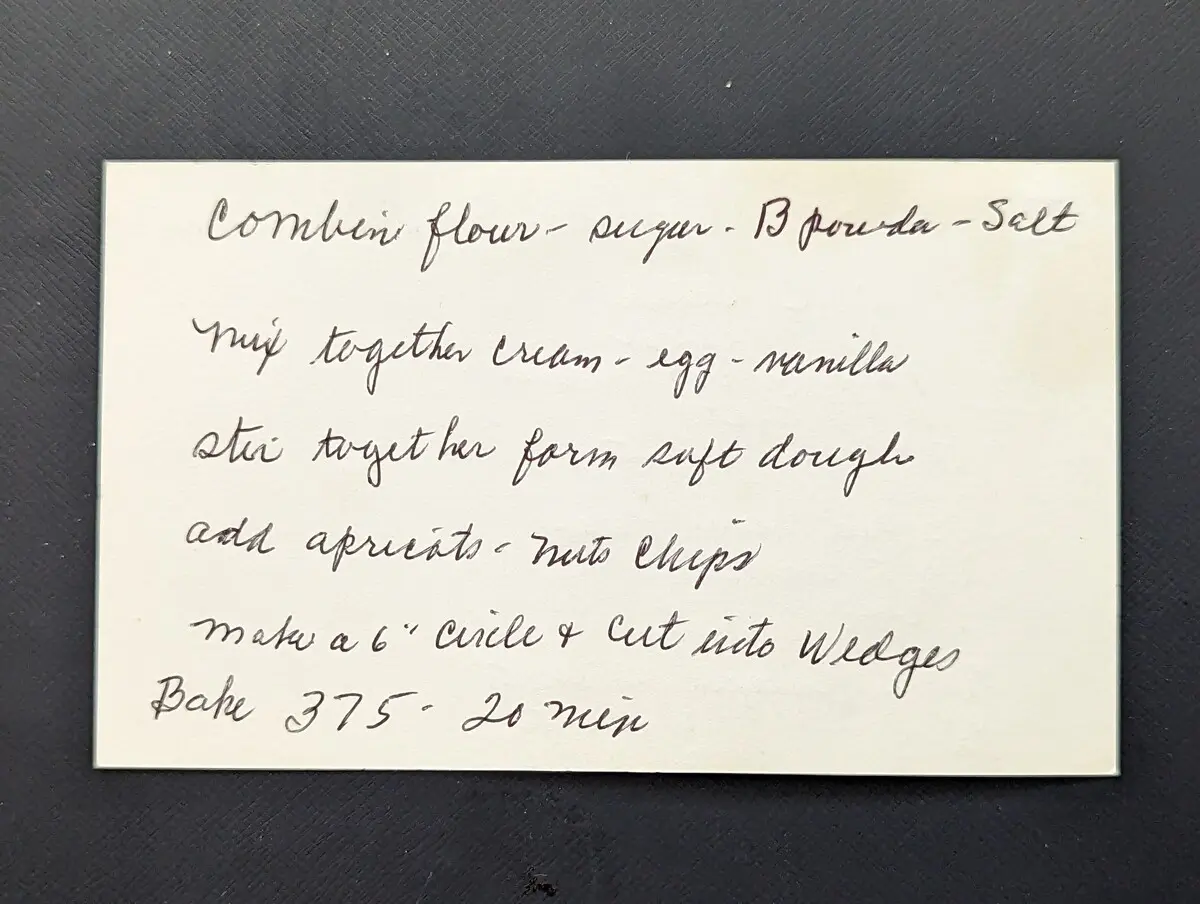 Combin flour - sugar - B powda - Salt
Mix together cream - egg - vanilla
stir together form soft dough
add apricots - nuts Chips
Make a 6" Circle & Cut into Wedges
Bake 375 - 20 min